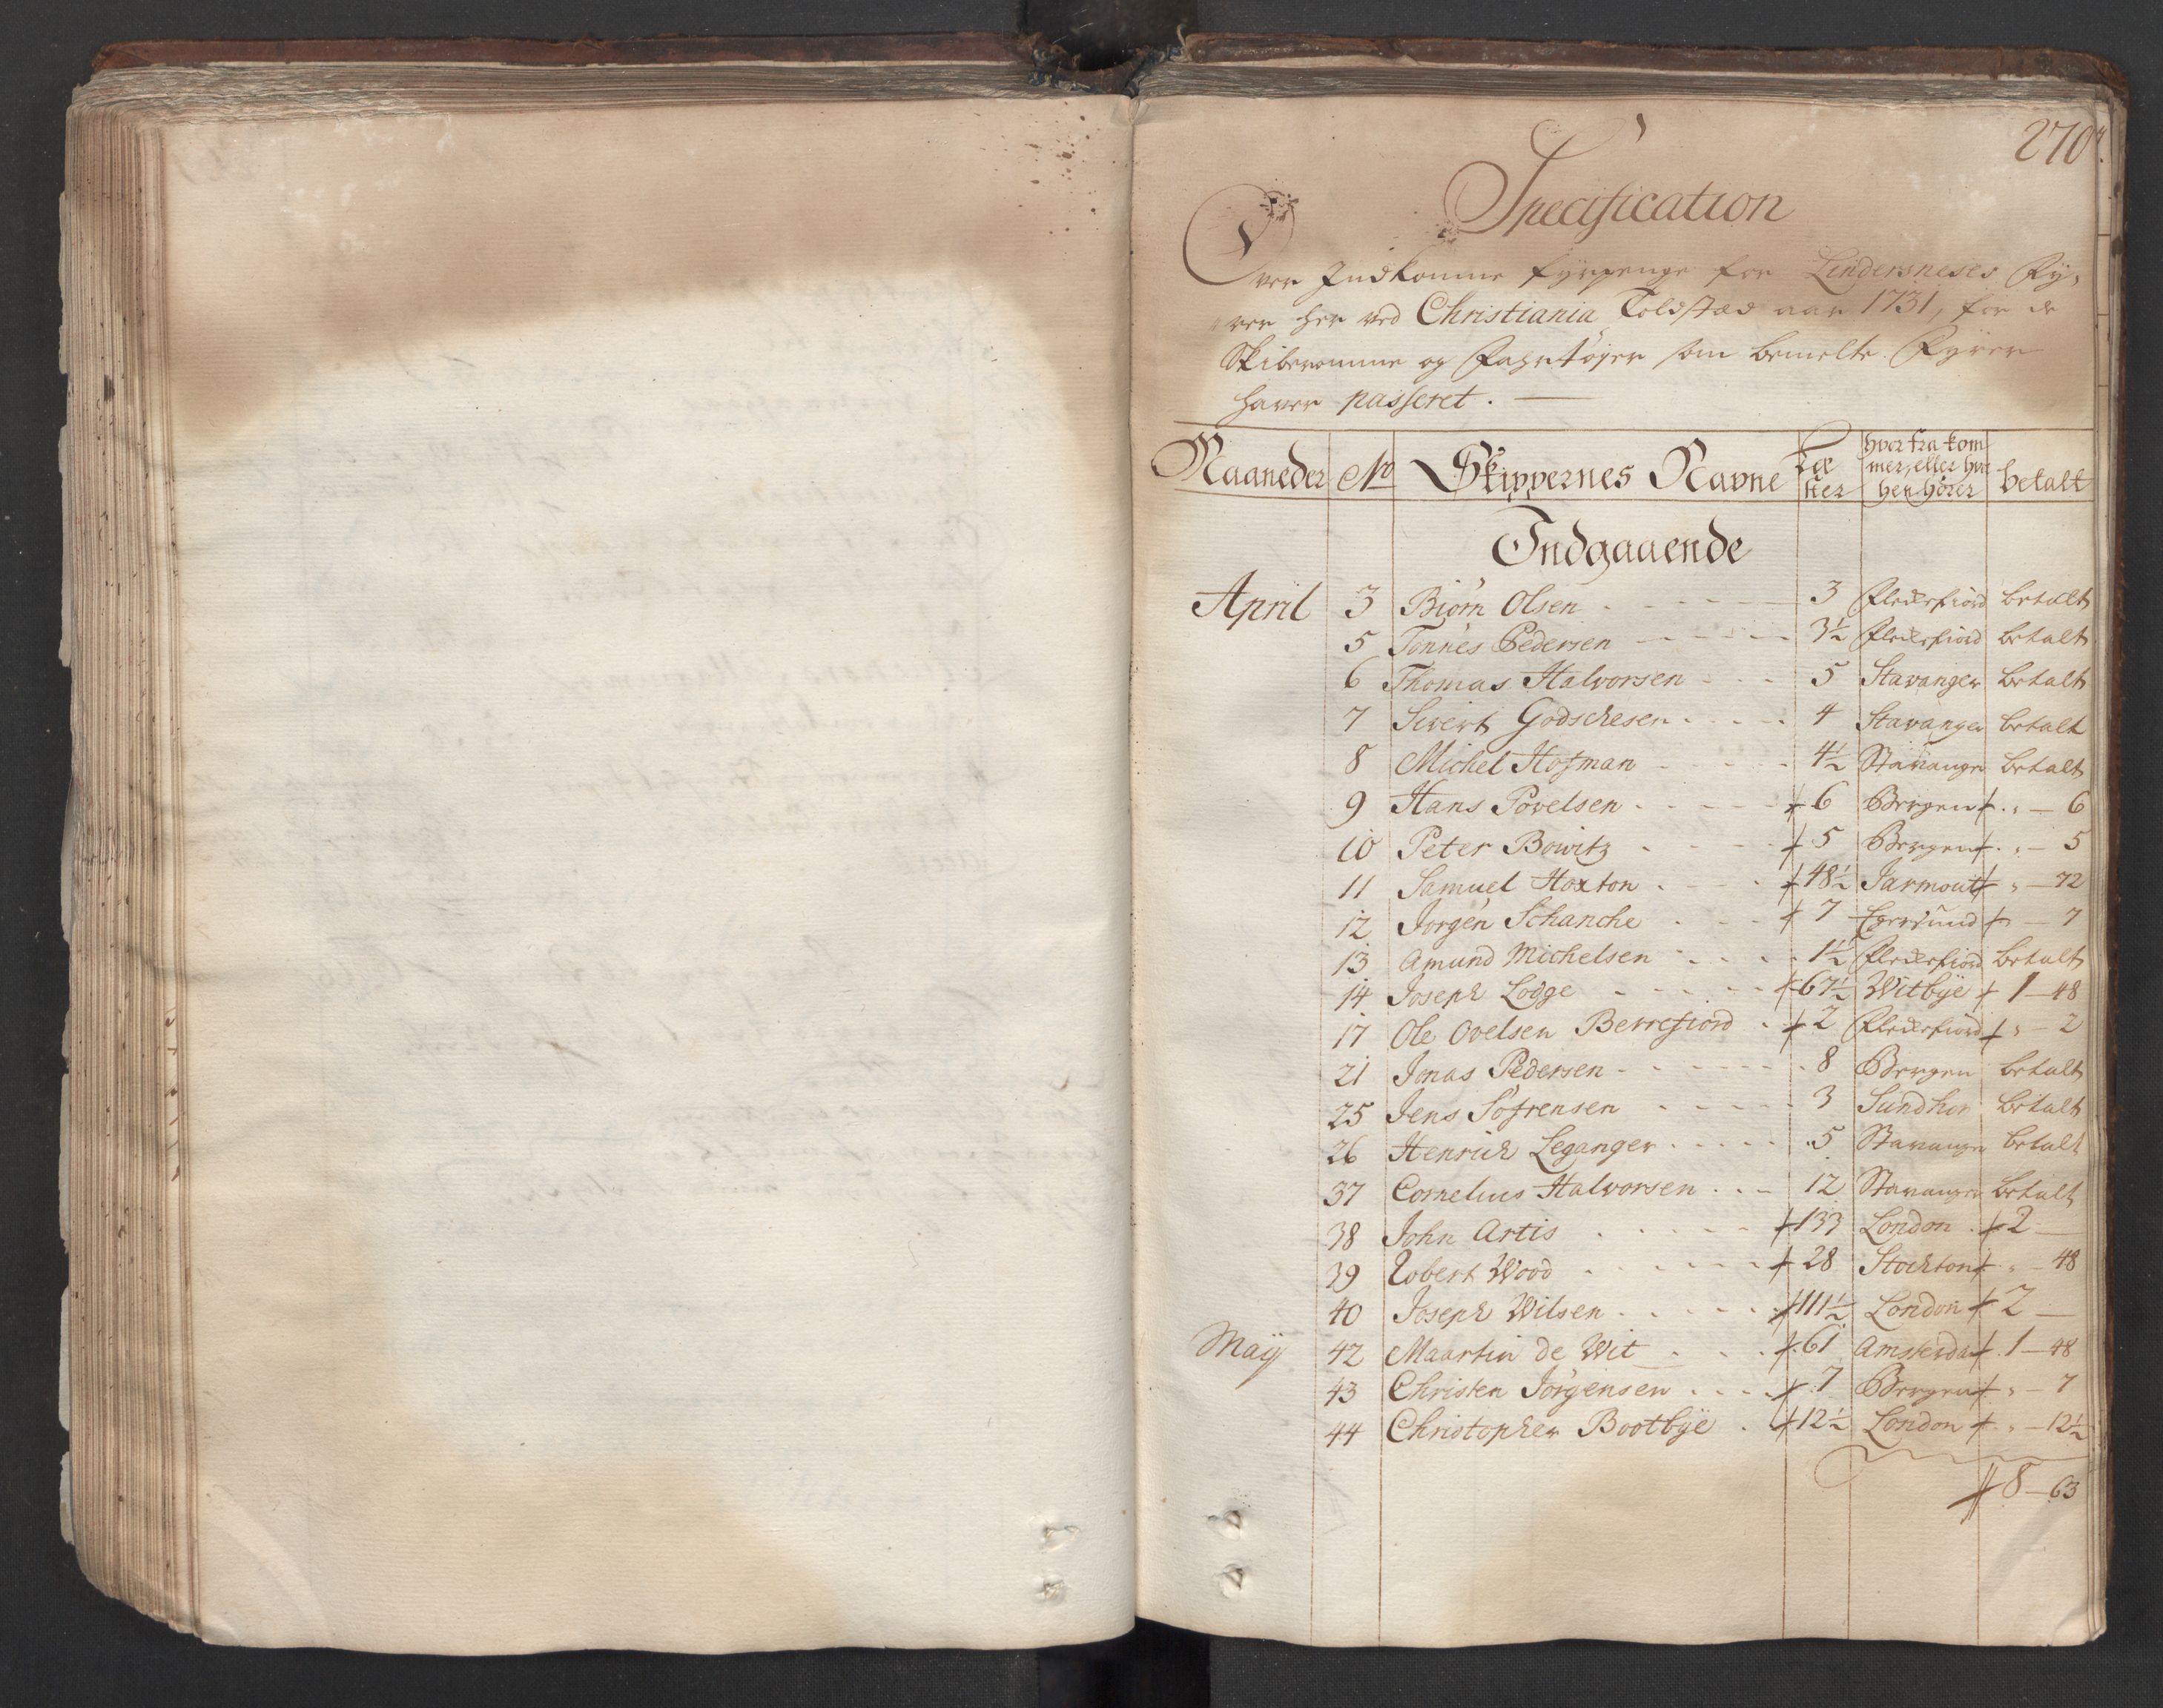 270.
Specification
Over Indkomne fyrpenge for Lindersneses Fÿ,
rer her ved Christiania Toldsted aar 1731, for de
Skiberomme og Fartøyer som bemelte Fyrer
haver passeret. —
Maaneder No Skippernes Navne Læ ster hvor fra kom mer, eller hvor hen hörer betalt
Indgaaende
April 3 Biørn Olsen 3 Flechefiord betalt
5 Tönnes Pedersen 3½ Flechefiord betalt
6 Thomas Halvorsen 5 Stavanger betalt
7 Sivert Godschesen 4 Stavanger betalt
8 Michel Hofman 4½ Stavanger betalt
9 Hans Povelsen 6 Bergen " — 6
10 Peter Bowitz 5 Bergen " — 5
11 Samuel Hoxton 48½ Jarmout " — 72
12 Jorgen Schanche 7 Egersund " — 7
13 Amund Michelsen 1½ Flechefiord betalt
14 Joseph Lodge 67½ Witbÿe 1 — 48
17 Ole Ovelsen Berrefiord 2 Flechefiord " — 2
21 Jonas Pedersen 8 Bergen betalt
25 Jens Sofrensen 3 Sundhor betalt
26 Henrich Leganger 5 Stavanger betalt
37 Cornelius Halvorsen 12 Stavanger betalt
38 John Artis 133 London 2 —
39 Robert Wood 28 Stockton " — 48
40 Joseph Wilsen 111½ London 2 —
Maÿ 42 Maartin de Wit 61 Amsterdam 1 — 48
43 Christen Jörgensen 7 Bergen " — 7
44 Christopher Bootbÿe 12½ London " — 12½
8 — 63